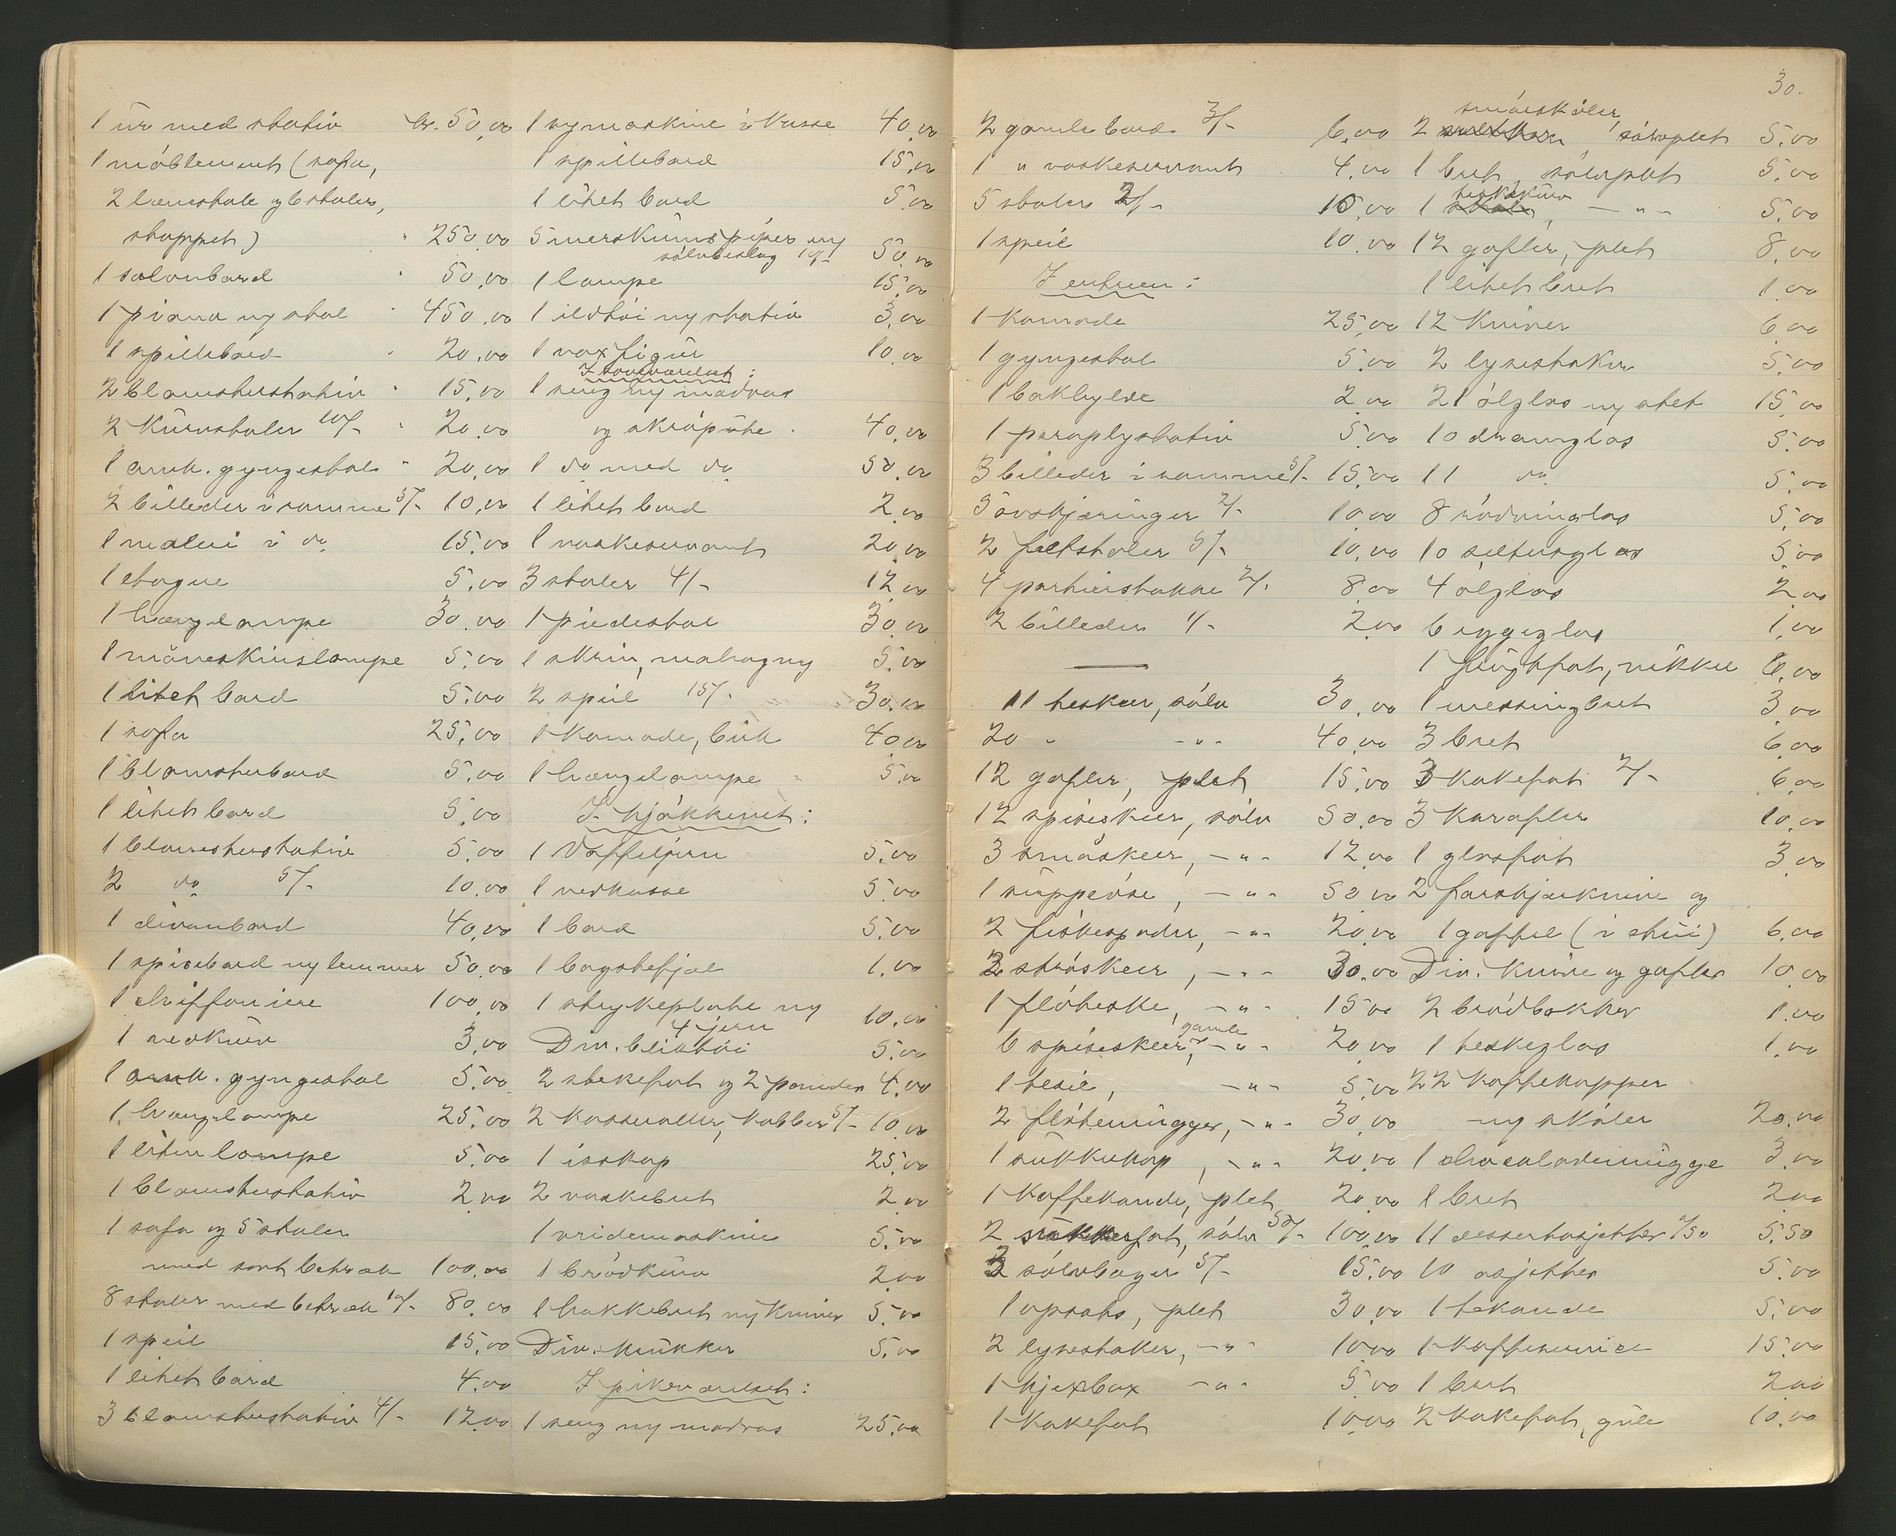 1 ur med stativ kr. 50,00
1 möblement (sofa,
2 lænestole og 6 stoler,
stoppet) " 250,00
1 salonbord " 50,00
1 piano og stol " 450,00
1 spillebord " 20,00
2 blomsterstativ " 15,00
2 kurvstoler 10/- " 20,00
1 amk. gyngestol " 20,00
2 billeder i ramme 5/- 10,00
1 maleri i do. 15,00
1 etagere 5,00
1 hængelampe 30,00
1 måneskinslampe 5,00
1 litet bord 5,00
1 sofa 25,00
1 blomsterbord 5,00
1 litet bord 5,00
1 blomsterstativ 5,00
2 do. 5/- 10,00
1 divanbord 40,00
1 spisebord og lemmer 50,00
1 chiffoniere 100,00
1 vedkurv 3,00
1 amk. gyngestol 5,00
1 hængelampe 25,00
1 liten lampe 5,00
1 blomsterstativ 2,00
1 sofa og 5 stoler
med sort betræk 100,00
8 stoler med betræk 10/- 80,00
1 speil 15,00
1 litet bord 4,00
3 blomsterstativ 4/- 12,00
1 symaskine i kasse 40,00
1 spillebord 15,00
1 litet bord 5,00
5 merskumspiper og
sölvbeslag 10/- 50,00
1 lampe 15,00
1 ildtöi og stativ 3,00
1 voxfigur 10,00
I soveværelset:
1 seng og madras
og skråpute 40,00
1 do med do. 50,00
1 litet bord 2,00
1 vaskeservant 20,00
3 stoler 4/- 12,00
1 piedestal 30,00
1 skrin, mahogny 5,00
2 speil 15/- 30,00
1 komode, bük 40,00
1 hængelampe 5,00
I kjökkenet:
1 vaffeljern 5,00
1 vedkasse 5,00
1 bord 5,00
1 bagstefjæl 1,00
1 strykeplate og
4 jern 10,00
Div. bliktöi 5,00
2 stekefat og 2 pander 4,00
2 kasseroller, kobber 5/- 10,00
1 isskap 25,00
2 vaskebret 2,00
1 vridemaskine 5,00
1 brödkurv 2,00
1 hakkebret og kniver 5,00
Div. krukker 5,00
I pikeværelset:
1 seng og madras 25,00
30.
2 gamle bord 3/- 6,00
1 " vaskeservant 4,00
5 stoler 2/- 10,00
1 speil 10,00
I entreen:
1 komode 25,00
1 gyngestol 5,00
1 bokhylde 2,00
1 paraplystativ 5,00
3 billeder i ramme 5/- 15,00
5 avskjæringer 2/- 10,00
2 feltstoler 5/- 10,00
4 portierstokke 2/- 8,00
2 billeder 1/- 2,00
11 teskeer, sölv 30,00
20 " -"- 40,00
12 gafler, plet 15,00
12 spiseskeer, sölv 50,00
3 småskeer, -"- 12,00
1 suppeöse, -"- 50,00
2 fiskespader, -"- 20,00
2 ströskeer, -"- 30,00
1 flöteske, -"- 15,00
6 spiseskeer, gamle -"- 20,00
1 tesil, -"- 5,00
2 flötemugger, -"- 30,00
1 sukkerkop, -"- 20,00
1 kaffekande, plet 20,00
2 sukkerfat, sölv 50/- 100,00
3 sölvbæger 5/- 15,00
1 opsats, plet 30,00
2 lysestaker, -"- 10,00
1 kjexbox -"- 5,00
1 kakefat 10,00
2 småskåler, sölvplet 5,00
1 bret, sölvplet 5,00
1 teskekurv, -"- 5,00
12 gafler, plet 8,00
1 litet bret 1,00
12 kniver 6,00
2 lysestaker 5,00
21 ölglas og stet 15,00
10 dramglas 5,00
11 do. 5,00
8 rödvinglas 5,00
10 selterglas 5,00
4 ölglas 2,00
6 eggeglas 1,00
1 frugtfat, nikkel 6,00
1 messingbret 3,00
3 bret 6,00
3 kakefat 2/- 6,00
3 karafler 10,00
1 glasfat 3,00
2 forskjærkniver og
1 gaffel (i etui) 6,00
Div. kniver og gafler 10,00
2 brödbakker 1,00
1 teskeglas 1,00
22 kaffekopper
og skåler 20,00
1 chocolademugge 3,00
1 bret 2,00
11 dessertasjetter à/50 5,50
10 asjetter 5,00
1 tekande 5,00
1 kaffeservice 15,00
1 bret 2,00
2 kakefat, gule 10,00